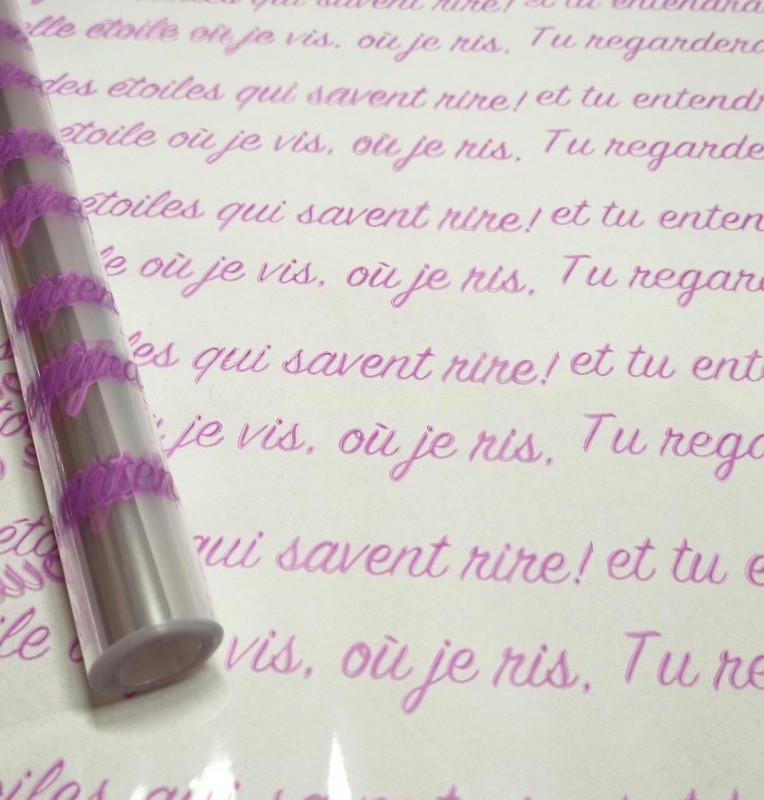 étoiles qui savent rire! et tu entendra
elle étoile où je vis, où je ris. Tu regardera
des étoiles qui savent rire! et tu entendr
étoile où je vis, où je ris. Tu regarde
étoiles qui savent rire! et tu enten
le où je vis, où je ris. Tu regard
les qui savent rire! et tu ent
je vis, où je ris. Tu rega
étoi qui savent rire! et tu e
ile vis, où je ris. Tu re
oiles qui savent